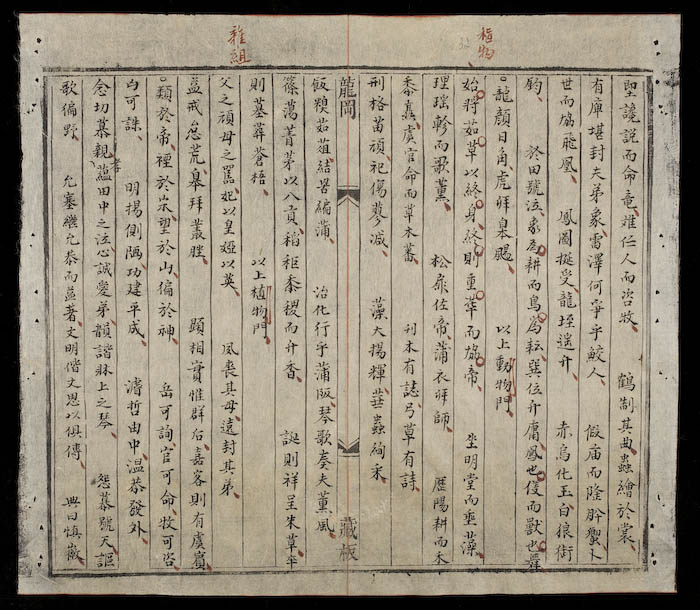 植物
雜組
堲讒說而命竜難任人而咨牧 鶴制其曲蟲繪於裳
有庳堪封夫弟象雷澤何爭乎鮫人 假庙而隆肸蠁卜
世而協飛凰 鳳圖挺受龍堙遙升 赤烏化玉白狼銜
鈎 於田號泣象為耕而鳥為耘巽位升庸鳳也儀而獸也舞
龍顏日角虎拜皋颺 以上動物門
始將茹草以終身終則重華而協帝 坐明堂而垂藻
理瑤軫而歌薰 松扉佐帝蒲衣拜師 歷陽耕而禾
黍嘉虞官命而草木蕃 刊木有誌弓草有詩
刑格苗頑祀傷蓼减 藻火揚輝華蟲絢采
龍岡 藏板
飯糗茹葅結罟編蒲 治化行乎蒲阪琴歌奏夫薰風
篠蕩菁茅以八貢稻秬黍稷而升香 誕則祥呈朱草卒
則墓葬蒼梧 以上植物門
父之頑母之嚚妃以皇婭以英 風喪其母遠封其弟
益戒怠荒皋拜叢脞 顯相實惟群后嘉客則有虞賓
類於帝禋於宗望於山徧於神 岳可詢官可命牧可咨
向可誅 明揚側陋功建平成 濬哲由中溫恭發外
念切慕親孝蓝田中之泣心誠愛弟韻諧牀上之琴 怨慕號天謳
歌徧野 允塞繼允恭而益著文明偕文思以俱傳 典曰慎徽